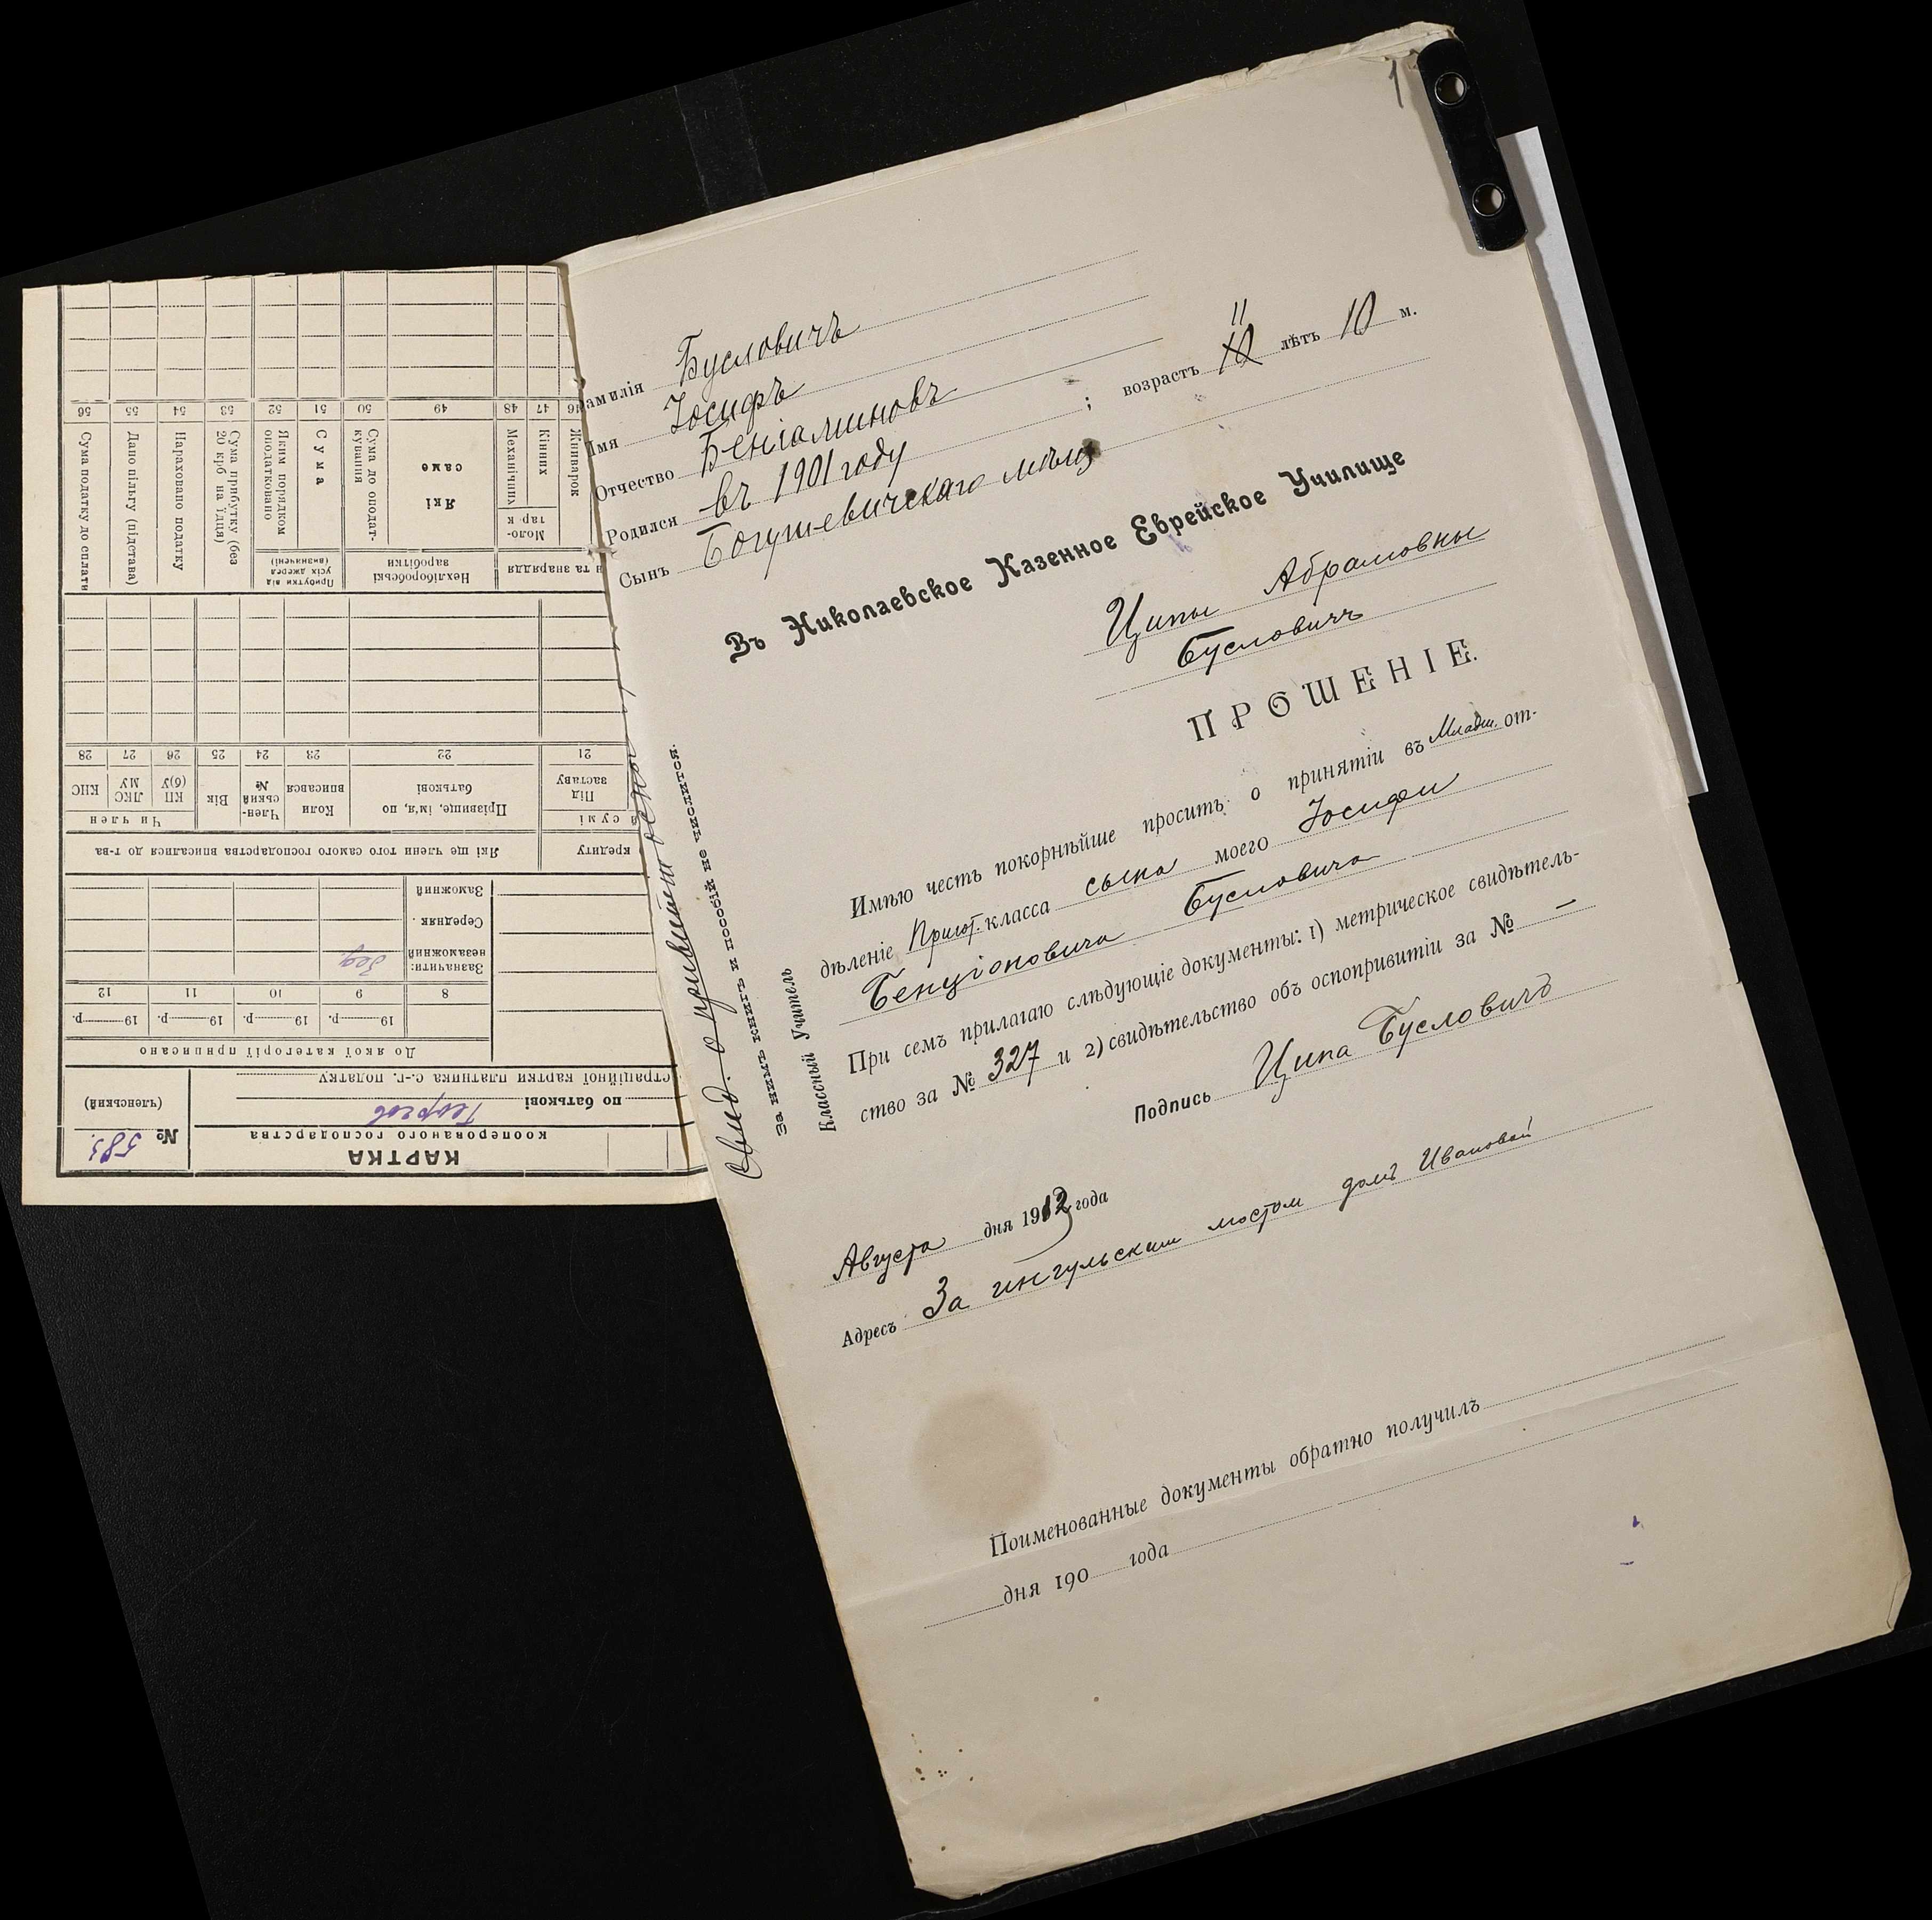 1
Фамилія Бусловичъ
Имя Іосифъ
Отчество Беніаминовъ
Родился въ 1901 году ; возрастъ 10 11 лѣтъ 10 м.
Сынъ Богушевичскаго мѣщ
Въ Николаевское Казенное Еврейское Училище
Ципы Абрамовны
Бусловичъ
ПРОШЕНІЕ.
Имѣю честь покорнѣйше просить о принятіи въ Младш. от-
дѣленіе Пригот. класса сына моего Іосифа
Бенціоновича Бусловича
При семъ прилагаю слѣдующіе документы: 1) метрическое свидѣтель-
ство за № 327 и 2) свидѣтельство объ оспопривитіи за № —
Подпись Ципа Бусловичъ
Августа дня 1912 года
Адресъ За ингульским мостом домъ Ивановой
Поименованные документы обратно получилъ
дня 190 года
Свид. о привитіи оспы
За нимъ книгъ и пособій не числится.
Классный Учитель
КАРТКА
кооперованого господарства
№ 583
(членський)
по батькові Георгов
страційної картки платника с.-г. податку
До якої категорії приписано
19 р. 19 р. 19 р. 19 р.
8 9 10 11 12
Зазначити:
незаможний Бед.
Середняк
Заможний
кредиту
Які ще члени того самого господарства вписалися до т-ва
а сумі
Під заставу
Прізвище, ім'я, по батькові
Коли вписався
Член-ський №
Вік
Чи член
КП(б)У
ЛКСМУ
КНС
21 22 23 24 25 26 27 28
и та знаряддя
Нехліборобські заробітки
Прибутки від усіх джерел (визначені)
Моло-тар-к
Жниварок
Кінних
Механічних
Які саме
Сума до оподат-кування
Сума
Яким порядком оподатковано
Сума прибутку (без 20 крб на їдця)
Нараховано податку
Дано пільгу (підстава)
Сума податку до сплати
46 47 48 49 50 51 52 53 54 55 56